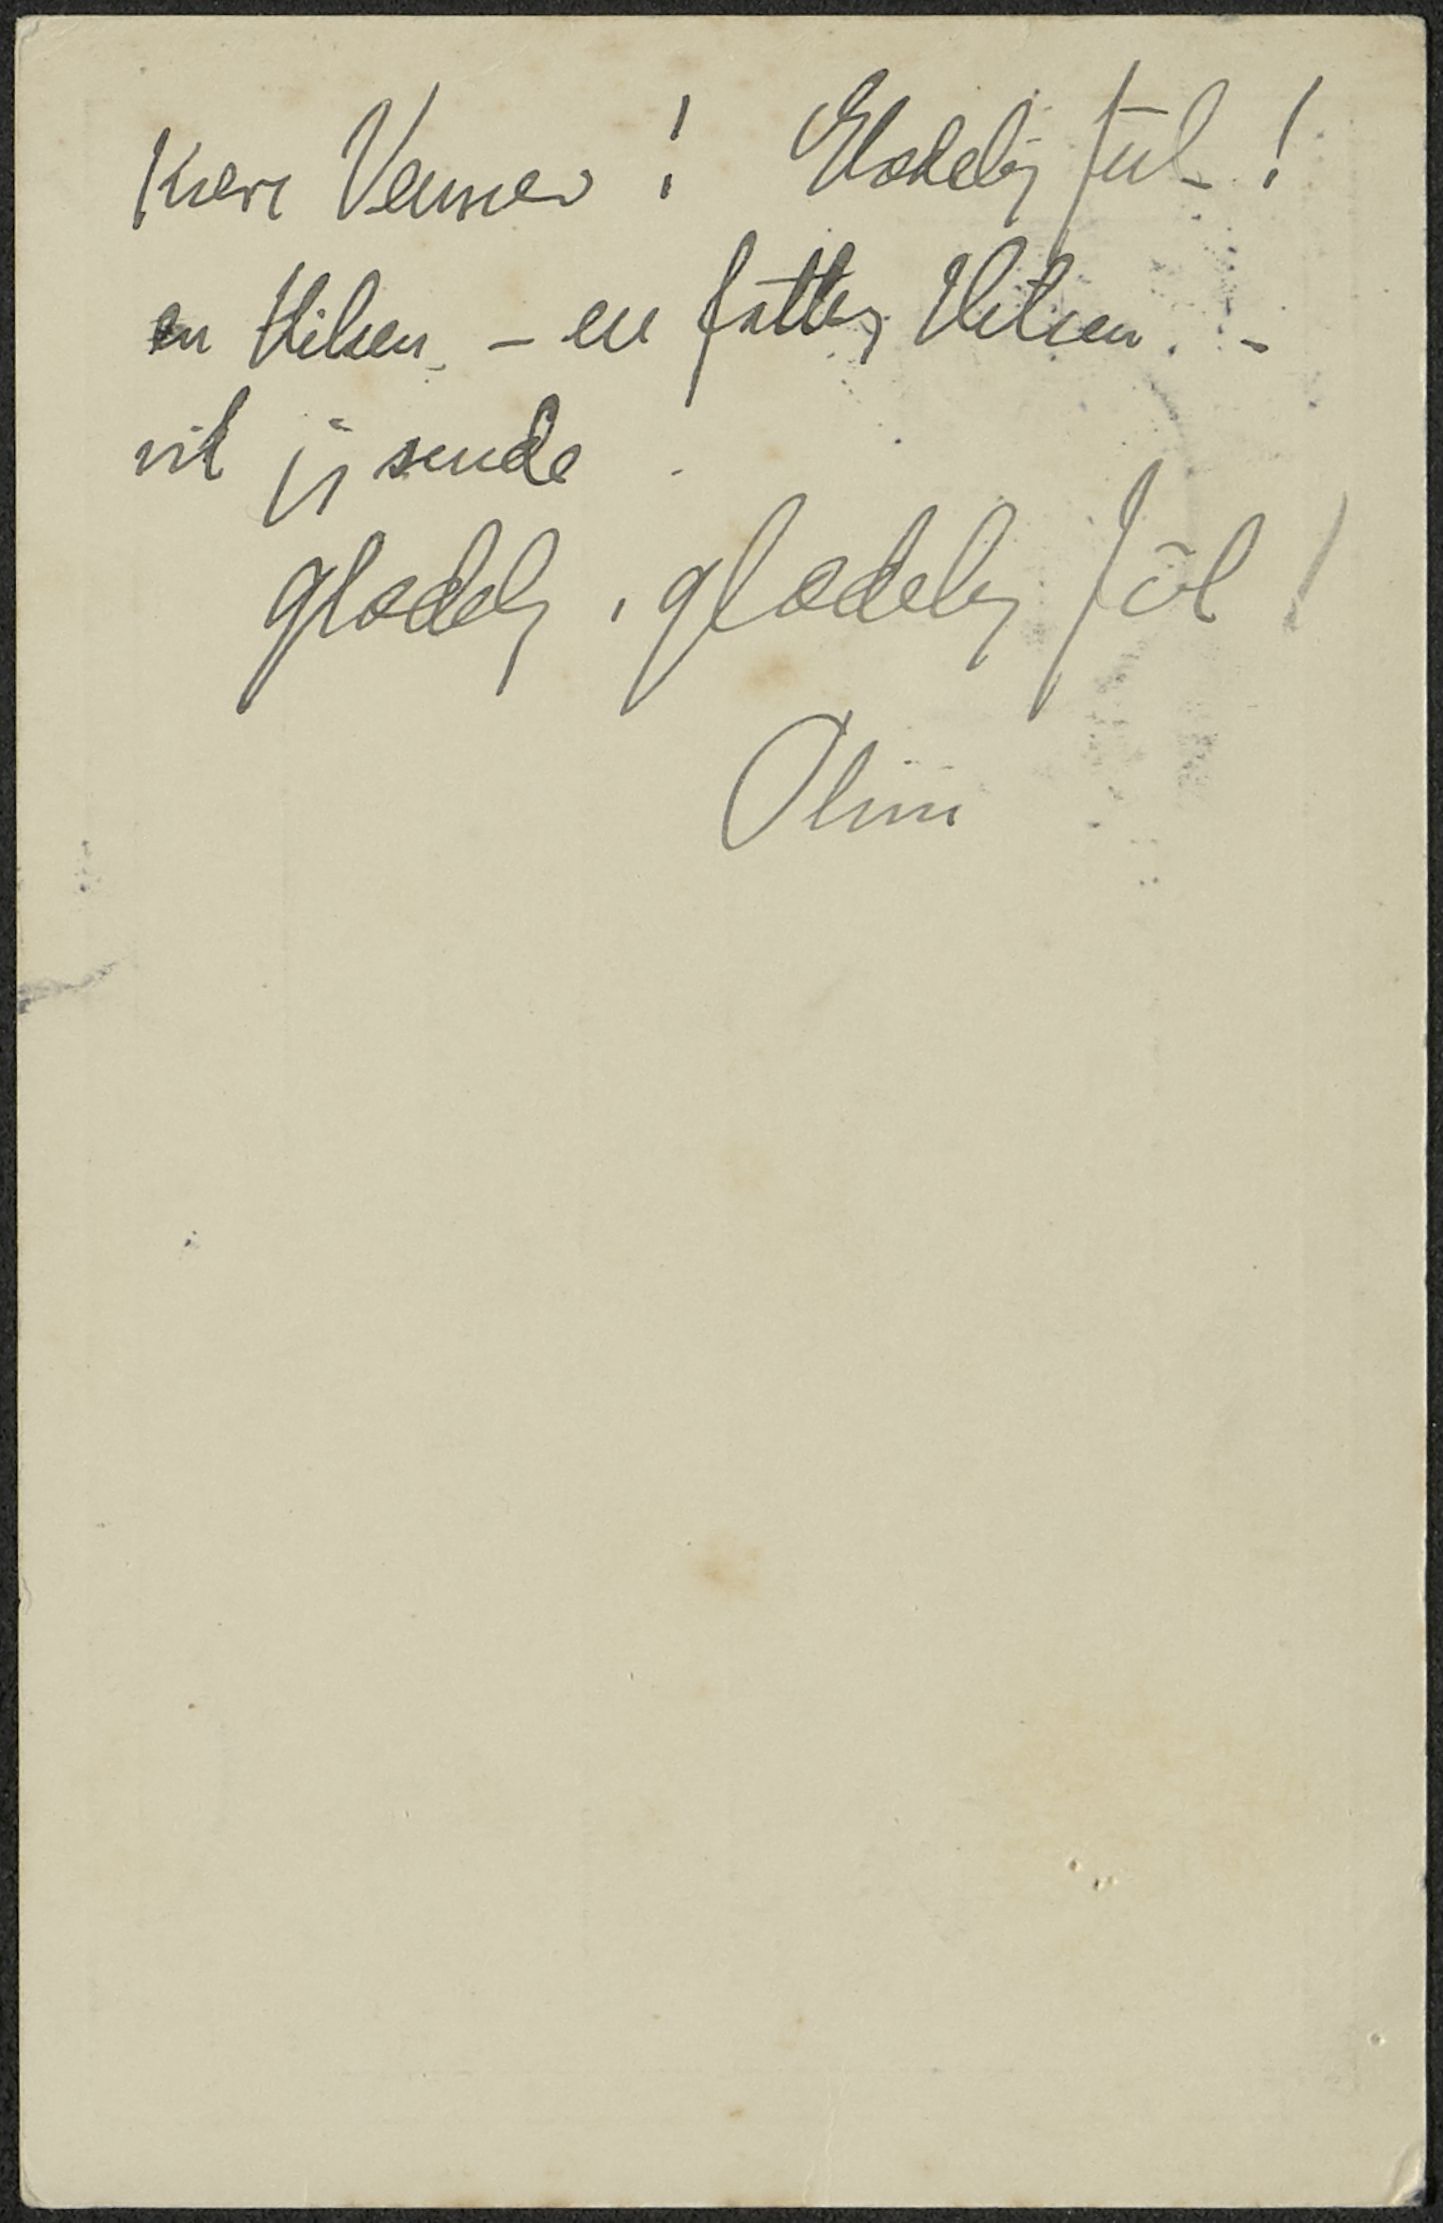 Kære Venner! Glædelig Jul!
en Hilsen, – en fattig Hilsen. –
vil jeg sende.
glædelig, glædelig Jul!